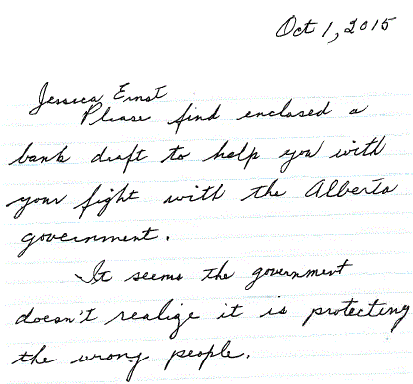 Oct 1, 2015
Jessica Ernst
Please find enclosed a
bank draft to help you with
your fight with the Alberta
government.
It seems the government
doesn't realize it is protecting
the wrong people.